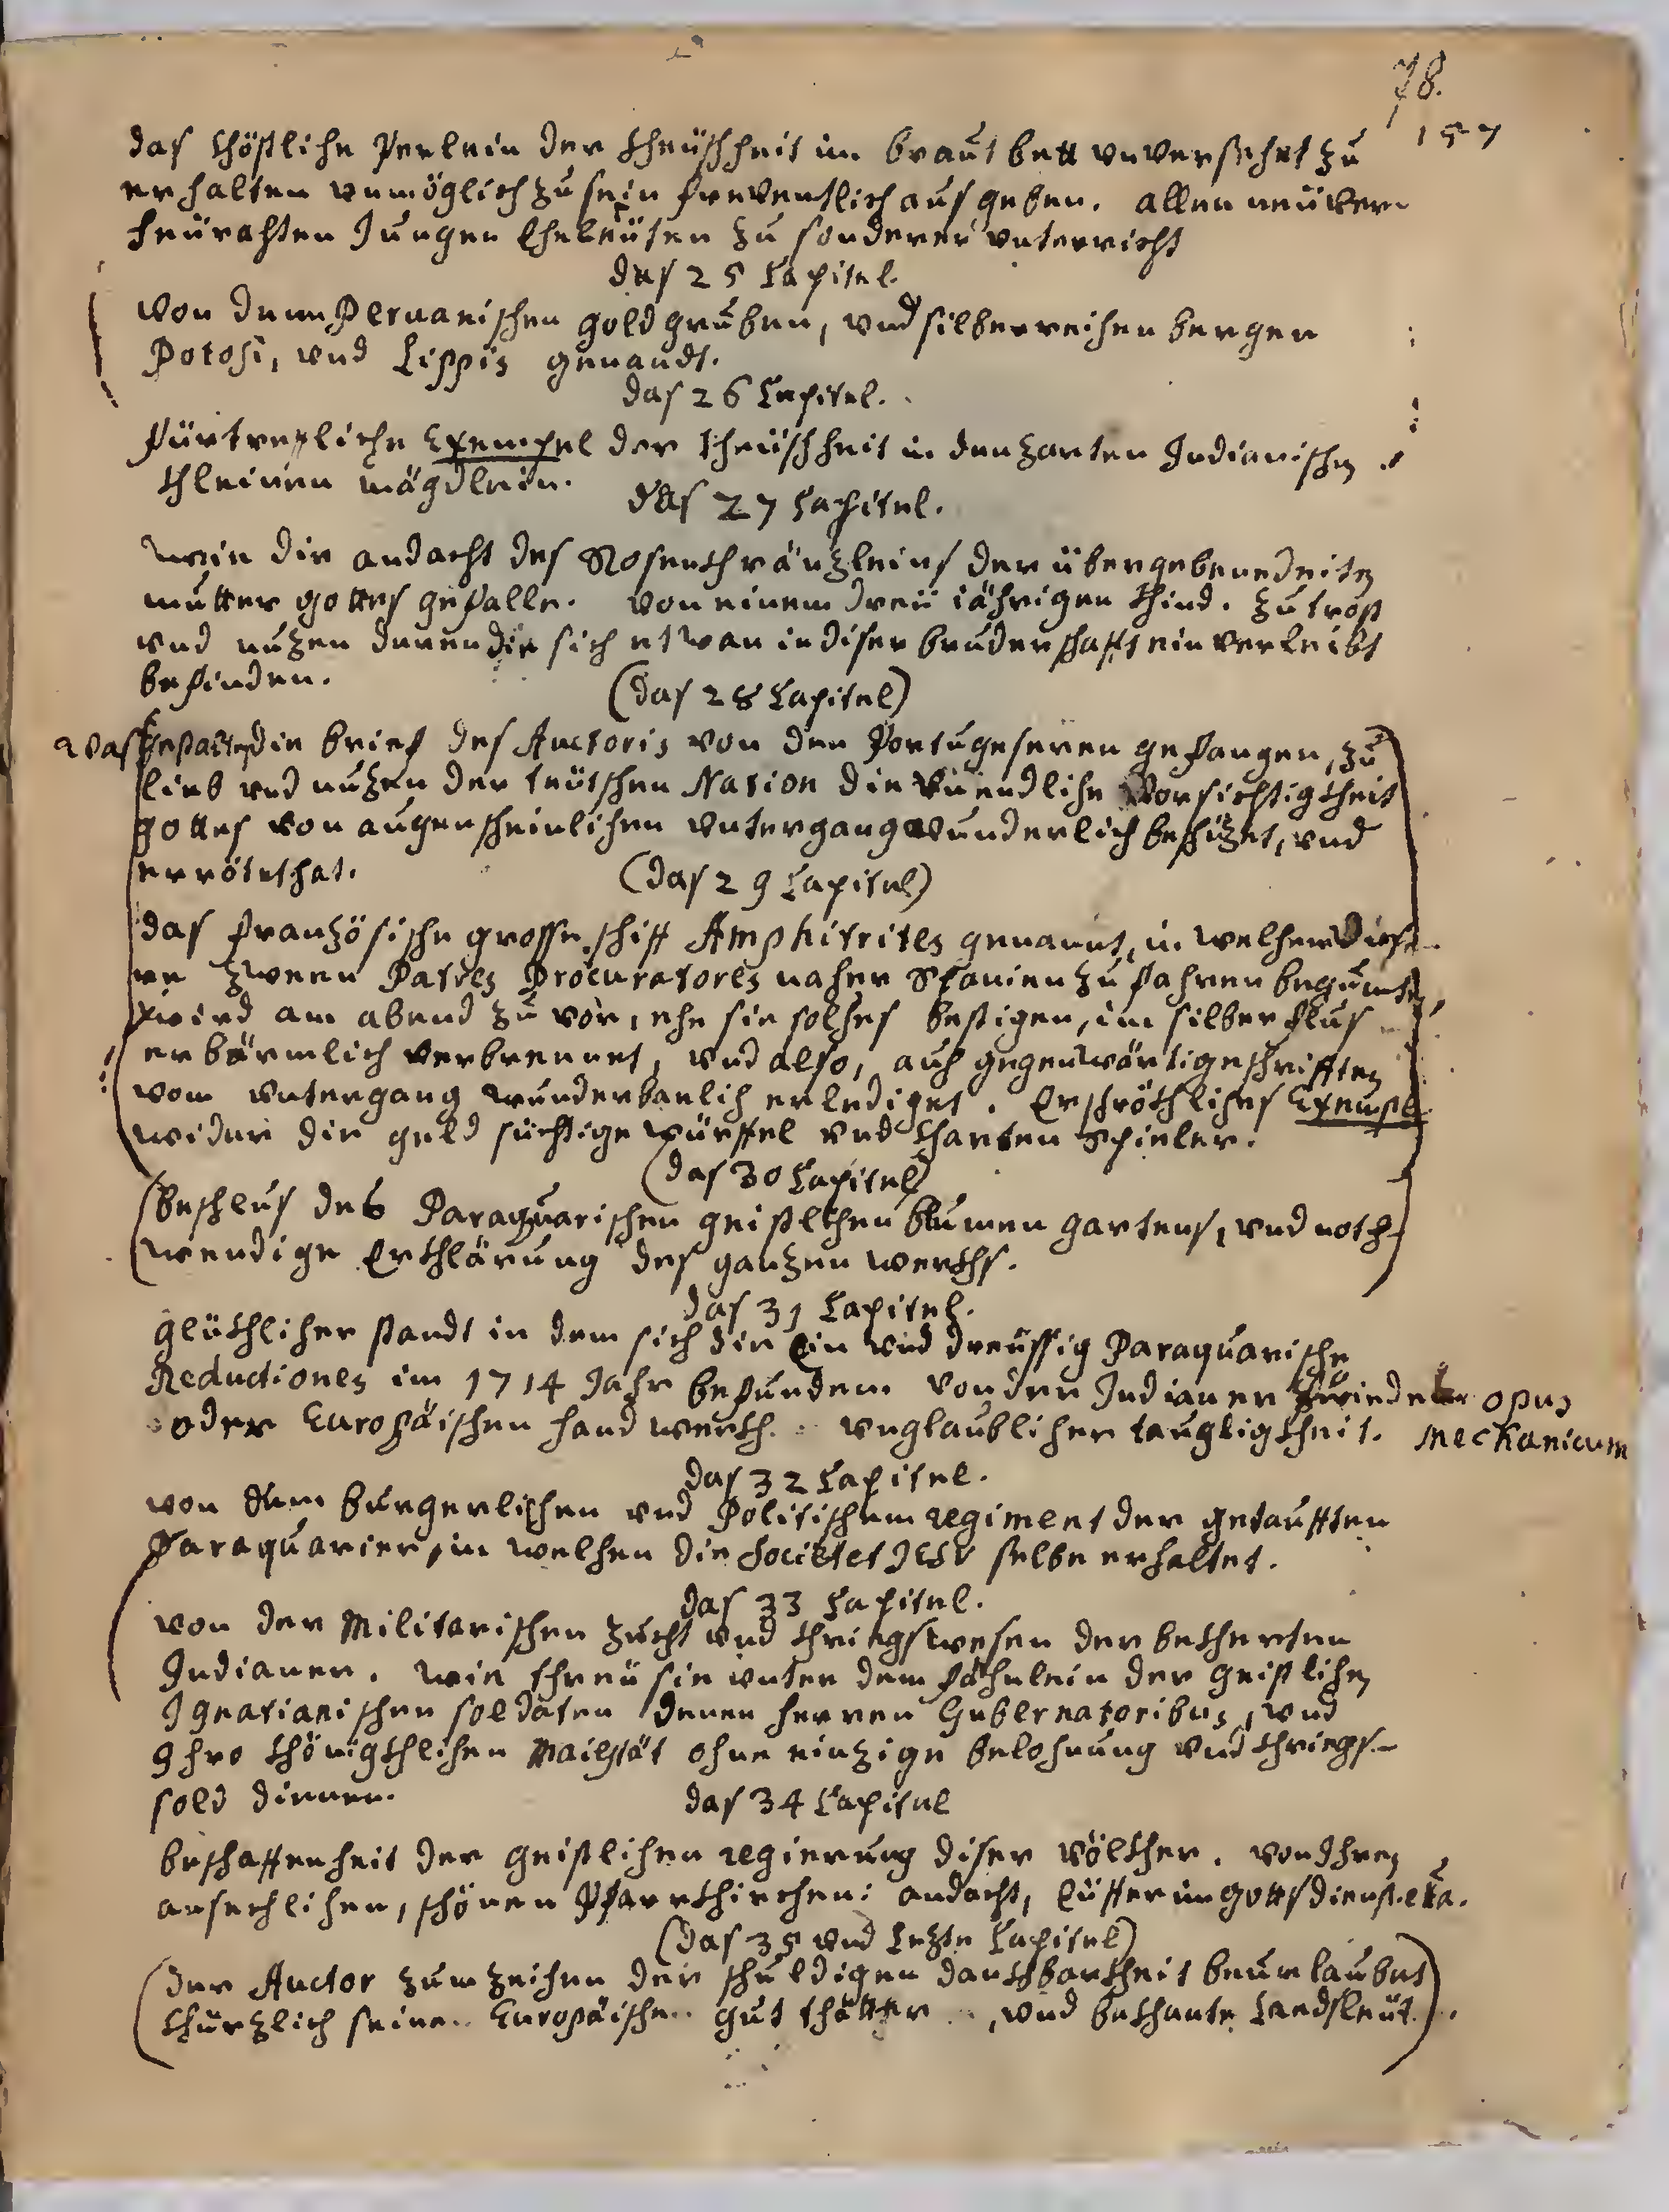 78.
157
das khöstliche Perlein der kheüschheit im braut bett unversehrt zu
erhalten unmöglich zu sein freventlich aus geben. allen neü ver-
heürathten Jungen Eheleüten zu sonderer unterricht
das 25 Capitel.
Von denen Peruanischen gold gruben, und silberreichen bergen
Potosi, und Lippis genandt.
das 26 Capitel.
Fürtrefliche Exempel der kheüschheit in den zarten Indianischen
khleinen mägdlein.
das 27 Capitel.
Wie die andacht des Rosenkhränzleins der übergebenedeiten
mutter gottes gefalle. von einem dreü jährigen khind. zu trost
und nuzen denen die sich etwan in diser bruderschafft ein verleibt
befinden.
(das 28 Capitel)
Was gestalten die brief des Auctoris von den Portugeseren gefangen, zu
lieb und nuzen der teütschen Nation die unendliche Vorsichtigkheit
gottes von augenscheinlichen untergang wunderlich beschizet, und
errötet hat.
(das 29 Capitel)
das französische grosse schiff Amphitrites genannt, in welchem
zween Patres Procuratores nacher Spanien zu fahren
wird am abend zu vor, ehe sie solches bestigen, im silberflus
erbärmlich verbrennet, und also, auch gegenwärtige schrifften
vom untergang wunderbarlich erlediget. Erschrökhliches Exempel
wider die geld süchtige würffel und kharten Spieler.
(das 30 Capitel)
(beschlus des Paraquarischen geistlichen blumen gartens, und noth-
wendige Erkhlärung des ganzen werkhs.
das 31 Capitel.
glükhlicher standt in dem sich die Ein und dreüssig Paraquarische
Reductiones im 1714 Jahr befunden. von der Indianer zu iede opus
oder Europäischen handwerkh. unglaublicher tauglichkheit. mechanicum
das 32 Capitel.
von dem burgerlichen und Politischem regiment der getaufften
Paraquarier, in welchen die Societet JESU selbe erhaltet.
das 33 Capitel.
von der Militarischen zucht und khriegswesen der bekherten
Indianer. wie threü sie unter dem fähnlein der geistlichen
Ignatianischen soldaten denen herren Gubernatoribus, und
Ihro khönigkhlichen Maiestät ohne einzige belohnung und khriegs-
sold dienen.
das 34 Capitel
beschaffenheit der geistlichen regierung diser völkher. von Ihren
ansechlichen, schönen Pfarrkhirchen: andacht, Eüffer im gottsdienst. etc.
(das 35 und Lezte Capitel)
(der Auctor zum zeichen der schuldigen dankhbarkheit beurlaubet
khürzlich seine Europäische gut thätter, und bekhante Landsleüt.)